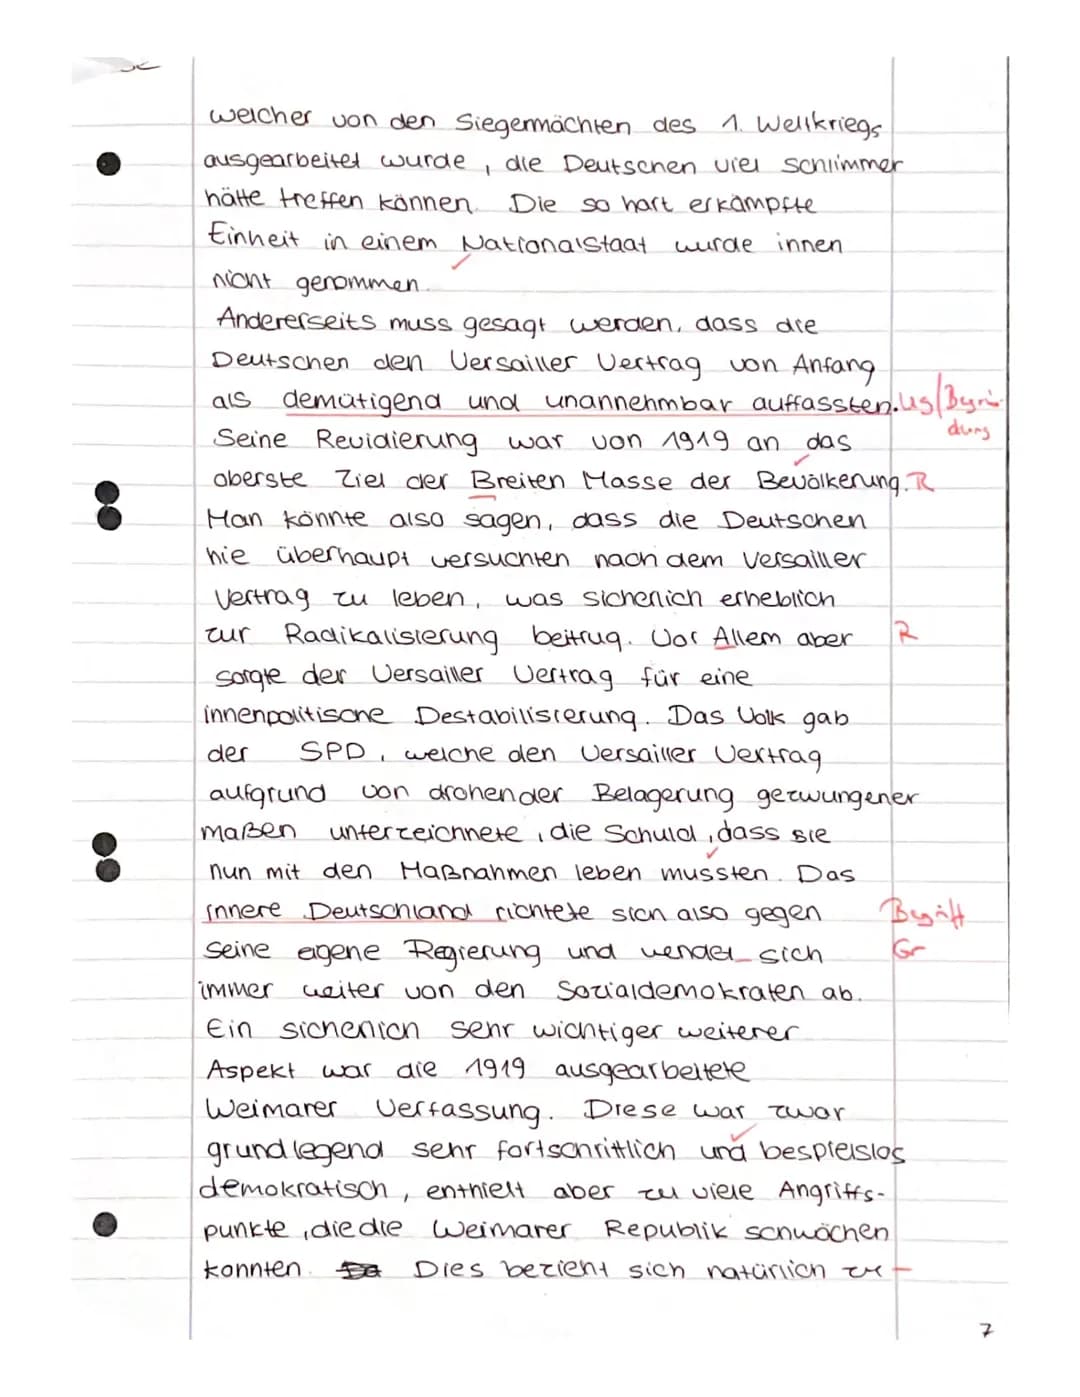 welcher von den Siegermächten des 1. Weltkriegs
ausgearbeitet wurde, die Deutschen viel schlimmer
hätte treffen können. Die so hart erkämpfte
Einheit in einem Nationalstaat wurde innen
nicht genommen.
Andererseits muss gesagt werden, dass die
Deutschen den Versailler Vertrag von Anfang
als demütigend und unannehmbar auffassten. us/Begrün-
dung
Seine Revidierung war von 1919 an das
oberste Ziel der Breiten Masse der Bevölkerung. R
Man könnte also sagen, dass die Deutschen
nie überhaupt versuchten nach dem Versailler
Vertrag zu leben, was sicherlich erheblich
zur Radikalisierung beitrug. Vor Allem aber R
sorgte der Versailler Vertrag für eine
innenpolitische Destabilisierung. Das Volk gab
der SPD, welche den Versailler Vertrag
aufgrund von drohender Belagerung gezwungener
maßen unterzeichnete, die Schuld, dass sie
nun mit den Maßnahmen leben mussten. Das
innere Deutschland richtete sich also gegen Begriff
seine eigene Regierung und wendet sich Gr
immer weiter von den Sozialdemokraten ab.
Ein sicherlich sehr wichtiger weiterer
Aspekt war die 1919 ausgearbeitete
Weimarer Verfassung. Diese war zwar
grundlegend sehr fortschrittlich und bespielslos
demokratisch, enthielt aber zu viele Angriffs-
punkte, die die Weimarer Republik schwächen
konnten. Dies bezieht sich natürlich zu
7